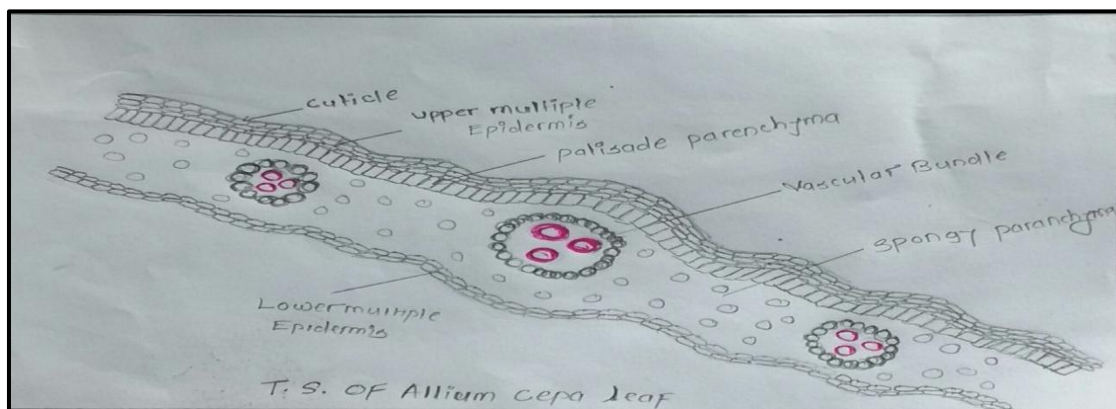 cuticle
upper multiple
Epidermis
palisade parenchyma
Vascular Bundle
spongy paranchyma
Lower multiple
Epidermis
T. S. OF Allium cepa leaf